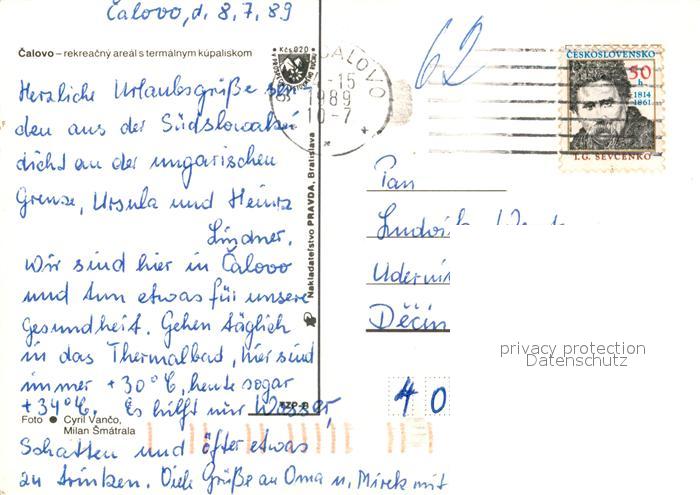 Čalovo, d. 8.7.89
Čalovo – rekreačný areál s termálnym kúpaliskom
Herzliche Urlaubsgrüße sen
den aus der Südslowakei
dicht an der ungarischen
Grenze, Ursula und Heinz
Lindner.
Wir sind hier in Čalovo
und tun etwas für unsere
Gesundheit. Gehen täglich
in das Thermalbad, hier sind
immer +30°C, heute sogar
+34°C. Es hilft nur Wasser,
Schatten und öfter etwas
zu trinken. Viele Grüße an Oma u. Mirek mit
Foto ● Cyril Vančo,
Milan Šmátrala
Kčs 0,20
Nakladateľstvo PRAVDA, Bratislava
ČALOVO
-15
1989
10-7
62
ČESKOSLOVENSKO
50
h
1814
1861
T.G. ŠEVČENKO
Pan
Děčín
40
privacy protection
Datenschutz